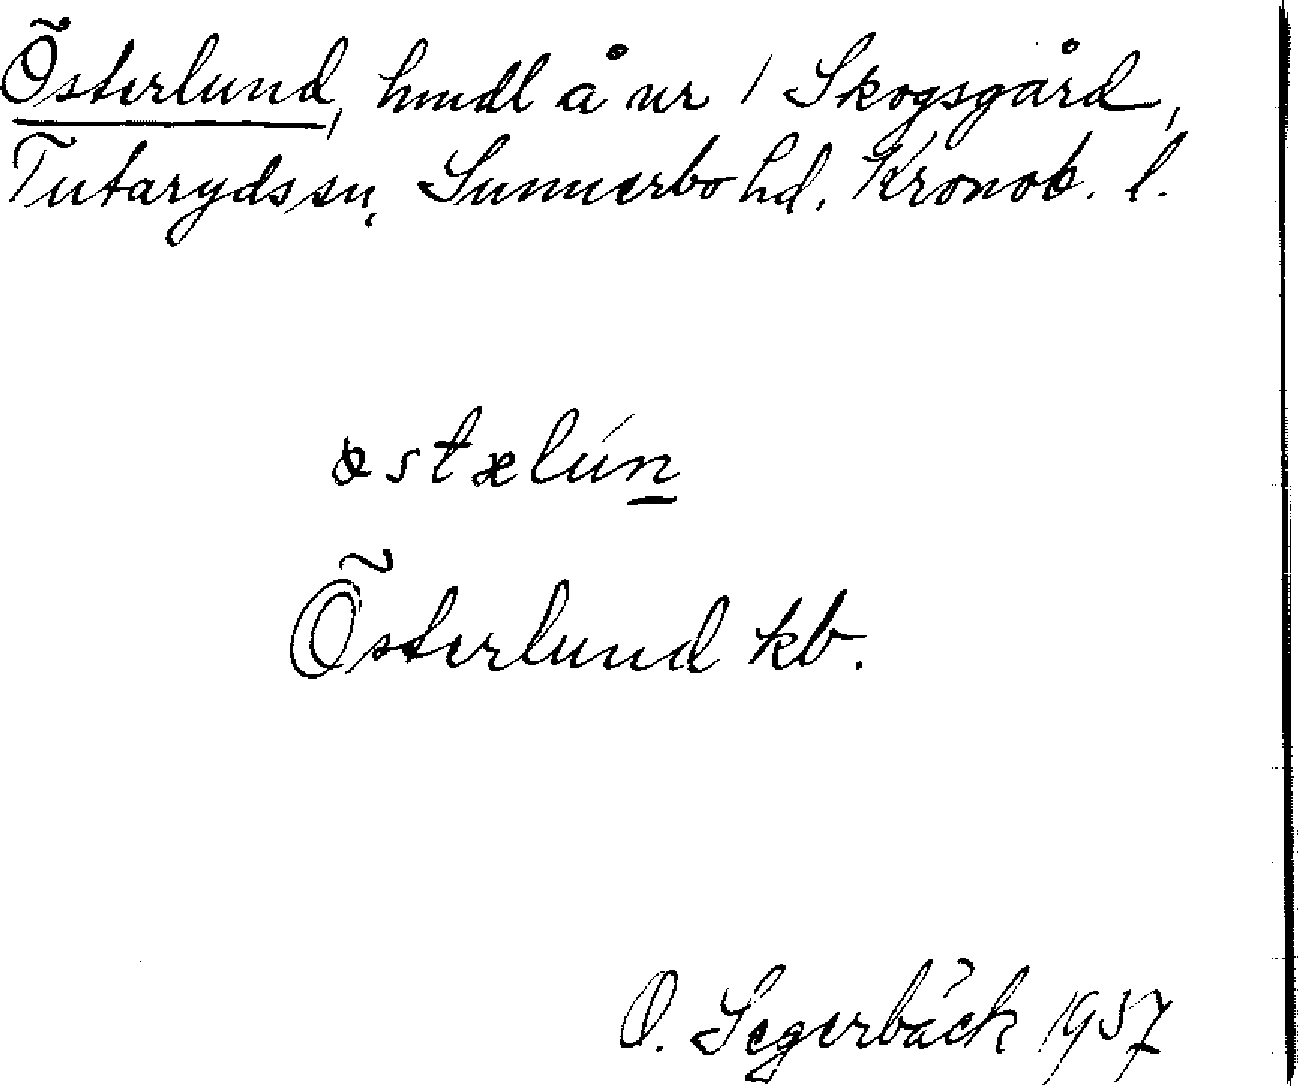 Österlund, hmdl å nr 1 Skogsgård,
Tutaryds sn, Sunnerbo hd, Kronob. l.
østælún
Österlund kb.
O. Segerbäck 1957